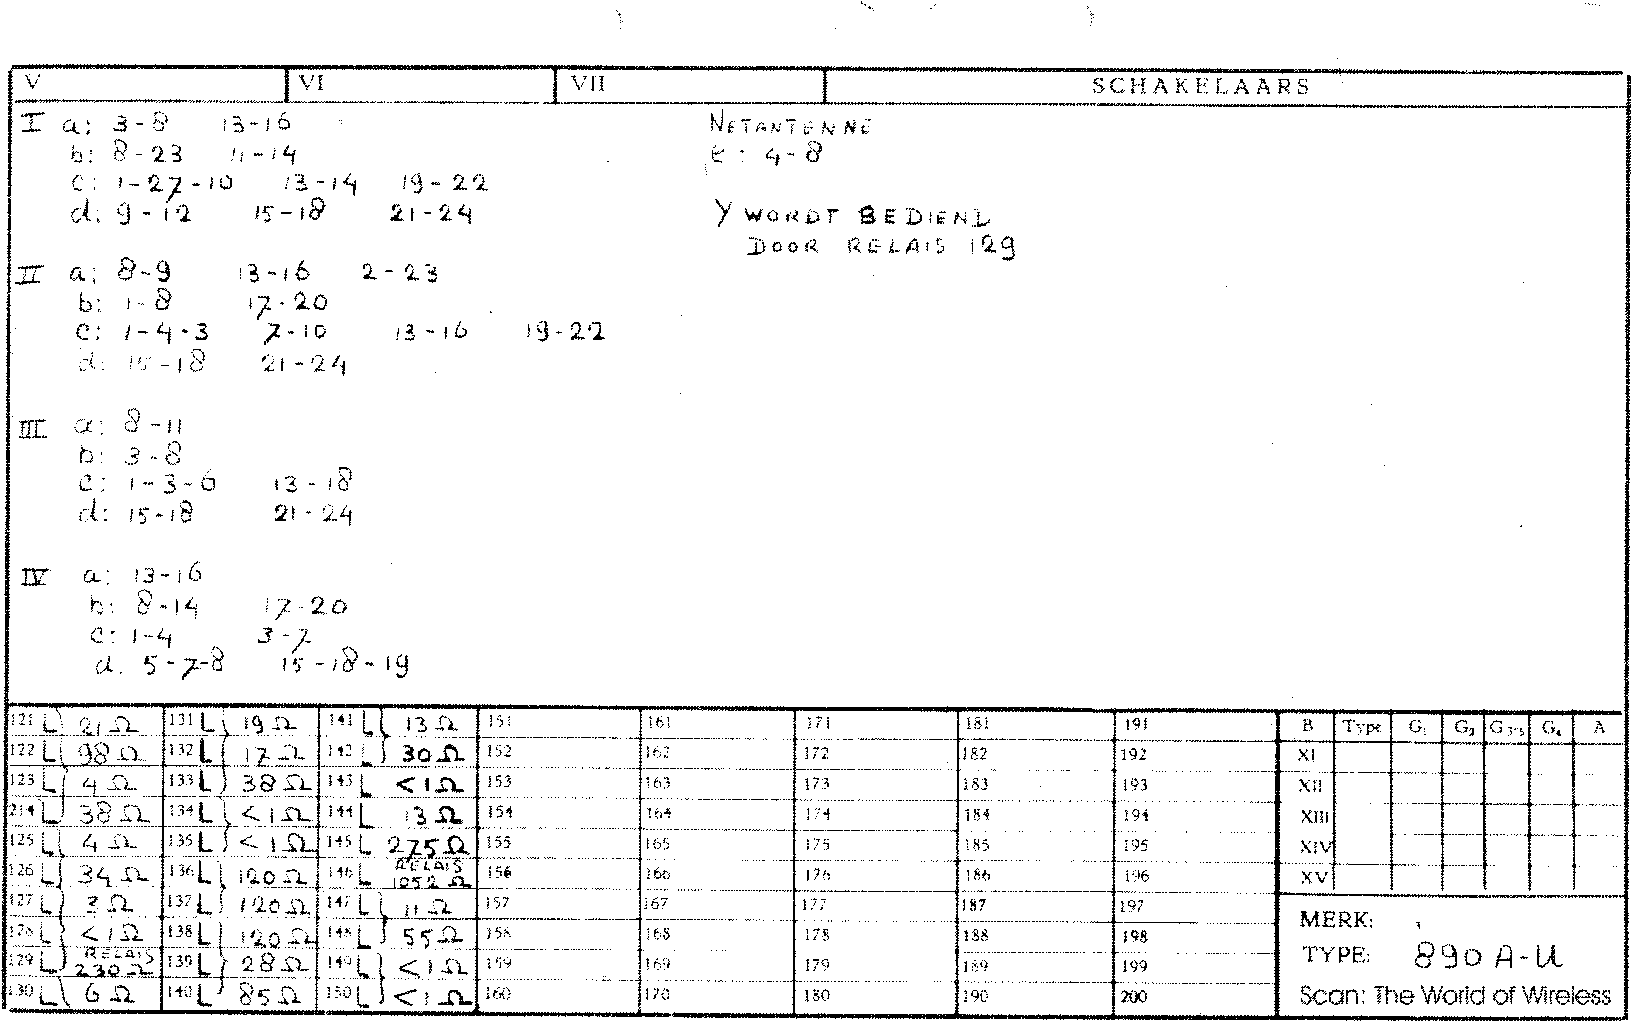 V VI VII SCHAKELAARS
I a: 3-8 13-16 NETANTENNE
b: 8-23 11-14 E: 4-8
c: 1-27-10 13-14 19-22
d: 9-12 15-18 21-24 Y WORDT BEDIEND
DOOR RELAIS 129
II a: 8-9 13-16 2-23
b: 1-8 17-20
c: 1-4-3 7-10 13-16 19-22
d: 15-18 21-24
III a: 8-11
b: 3-8
c: 1-3-6 13-18
d: 15-18 21-24
IV a: 13-16
b: 8-14 17-20
c: 1-4 3-7
d. 5-7-8 15-18-19
121 L 21 Ω 131 L 19 Ω 141 L 13 Ω 151 161 171 181 191 B Type G1 G2 G3-5 G4 A
122 L 98 Ω 132 L 17 Ω 142 L 30 Ω 152 162 172 182 192 XI
123 L 4 Ω 133 L 38 Ω 143 L <1 Ω 153 163 173 183 193 XII
214 L 38 Ω 134 L <1 Ω 144 L 13 Ω 154 164 174 184 194 XIII
125 L 4 Ω 135 L <1 Ω 145 L 275 Ω 155 165 175 185 195 XIV
126 L 34 Ω 136 L 120 Ω 146 L RELAIS 1052 Ω 156 166 176 186 196 XV
127 L 3 Ω 137 L 120 Ω 147 L 11 Ω 157 167 177 187 197
128 L <1 Ω 138 L 120 Ω 148 L 55 Ω 158 168 178 188 198 MERK:
129 L RELAIS 230 Ω 139 L 28 Ω 149 L <1 Ω 159 169 179 189 199 TYPE: 890 A-U
130 L 6 Ω 140 L 85 Ω 150 L <1 Ω 160 170 180 190 200 Scan: The World of Wireless